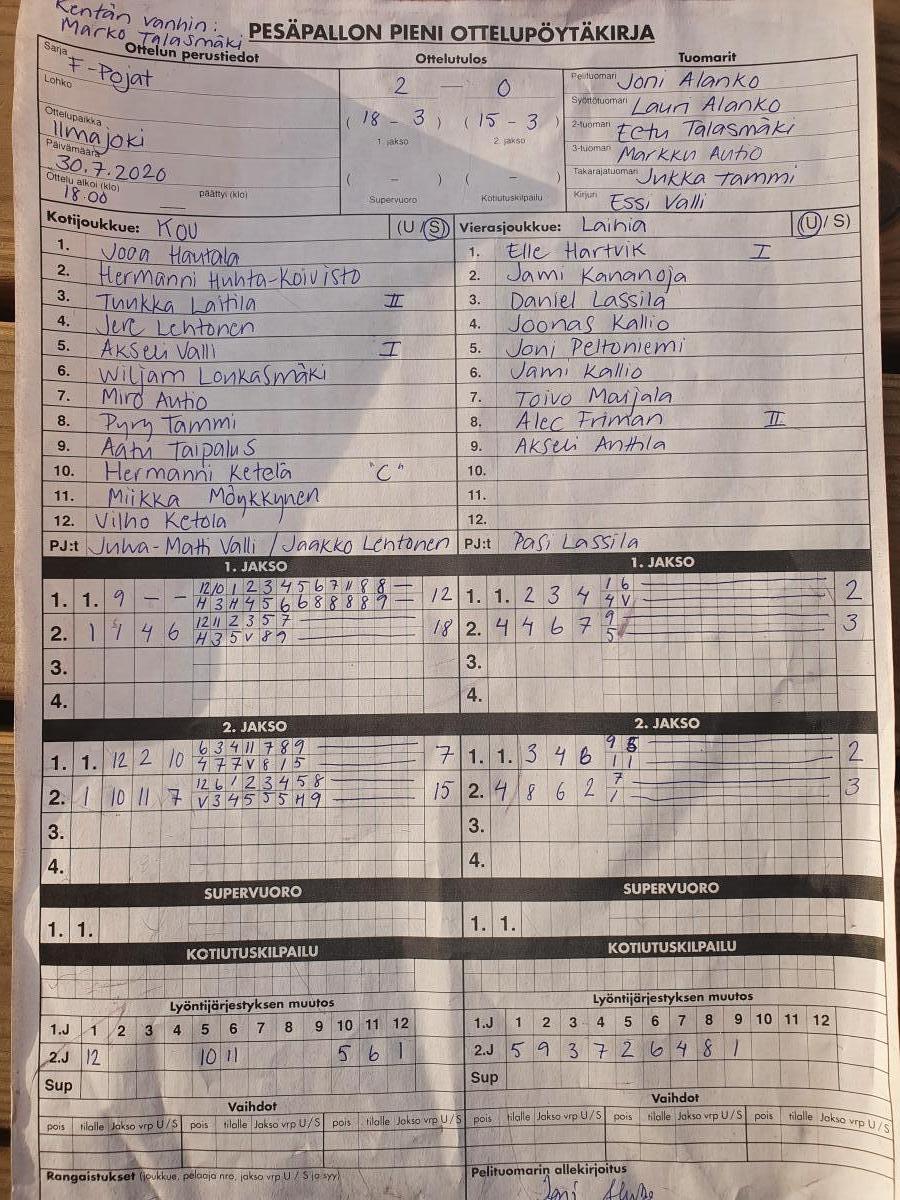 Kentän vanhin:
Marko Talasmäki
PESÄPALLON PIENI OTTELUPÖYTÄKIRJA
Ottelun perustiedot Ottelutulos Tuomarit
Sarja F-Pojat
Lohko
Ottelupaikka Ilmajoki
Päivämäärä 30.7.2020
Ottelu alkoi (klo) 18.00 päättyi (klo) —
2 — 0
(18 - 3) (15 - 3)
1. jakso 2. jakso
( - ) ( - )
Supervuoro Kotiutuskilpailu
Pelituomari Joni Alanko
Syöttötuomari Lauri Alanko
2-tuomari Eetu Talasmäki
3-tuomari Markku Autio
Takarajatuomari Jukka Tammi
Kirjuri Essi Valli
Kotijoukkue: KoU (U/S)
1. Joona Hautala
2. Hermanni Huhta-Koivisto
3. Tuukka Laitila II
4. Jere Lehtonen
5. Akseli Valli I
6. Wiljam Lonkasmäki
7. Miro Autio
8. Pyry Tammi
9. Aatu Taipalus
10. Hermanni Ketelä "C"
11. Miikka Möykkynen
12. Vilho Ketola
PJ:t Juha-Matti Valli / Jaakko Lehtonen
Vierasjoukkue: Laihia (U/S)
1. Elle Hartvik I
2. Jami Kananoja
3. Daniel Lassila
4. Joonas Kallio
5. Joni Peltoniemi
6. Jami Kallio
7. Toivo Marjala
8. Alec Friman II
9. Akseli Anttila
10.
11.
12.
PJ:t Pasi Lassila
1. JAKSO
1. 1. 9 – – 12 10 1 2 3 4 5 6 7 11 8 8 — 12
H 3 H 4 5 6 6 8 8 8 8 9 —
2. 1 1 4 6 12 11 2 3 5 7 18
H 3 5 V 8 9
3.
4.
1. JAKSO
1. 1. 2 3 4 1 6 2
4 V
2. 4 4 6 7 9 3
5
3.
4.
2. JAKSO
1. 1. 12 2 10 6 3 4 11 7 8 9 7
4 7 7 V 8 1 5
2. 1 10 11 7 12 6 1 2 3 4 5 8 15
V 3 4 5 5 5 H 9
3.
4.
2. JAKSO
1. 1. 3 4 6 9 2
1 1
2. 4 8 6 2 7 3
1
3.
4.
SUPERVUORO SUPERVUORO
1. 1. 1. 1.
KOTIUTUSKILPAILU KOTIUTUSKILPAILU
Lyöntijärjestyksen muutos
1.J 1 2 3 4 5 6 7 8 9 10 11 12
2.J 12 10 11 5 6 1
Sup
Lyöntijärjestyksen muutos
1.J 1 2 3 4 5 6 7 8 9 10 11 12
2.J 5 9 3 7 2 6 4 8 1
Sup
Vaihdot Vaihdot
pois tilalle Jakso vrp U/S pois tilalle Jakso vrp U/S pois tilalle Jakso vrp U/S
pois tilalle Jakso vrp U/S pois tilalle Jakso vrp U/S pois tilalle Jakso vrp U/S
Rangaistukset (joukkue, pelaaja nro, jakso vrp U / S ja syy)
Pelituomarin allekirjoitus
Joni